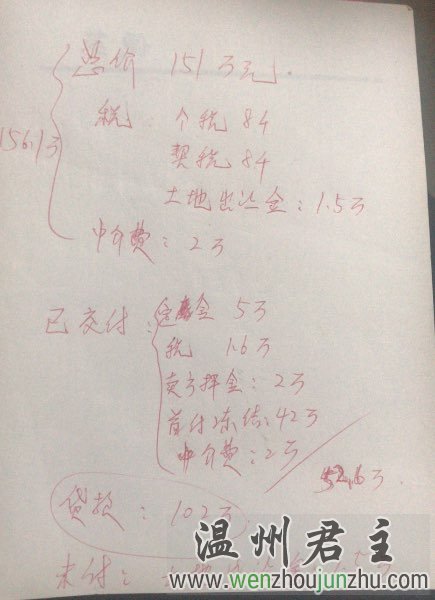 总价 151万元.
税: 个税 8千
契税 8千
土地出让金: 1.5万
156.1万
中介费: 2万
已交付: 定金 5万
税 1.6万
卖方押金: 2万
首付冻结: 42万
中介费: 2万
52.6万.
贷款: 102万
未付:
温州君主
www.wenzhoujunzhu.com